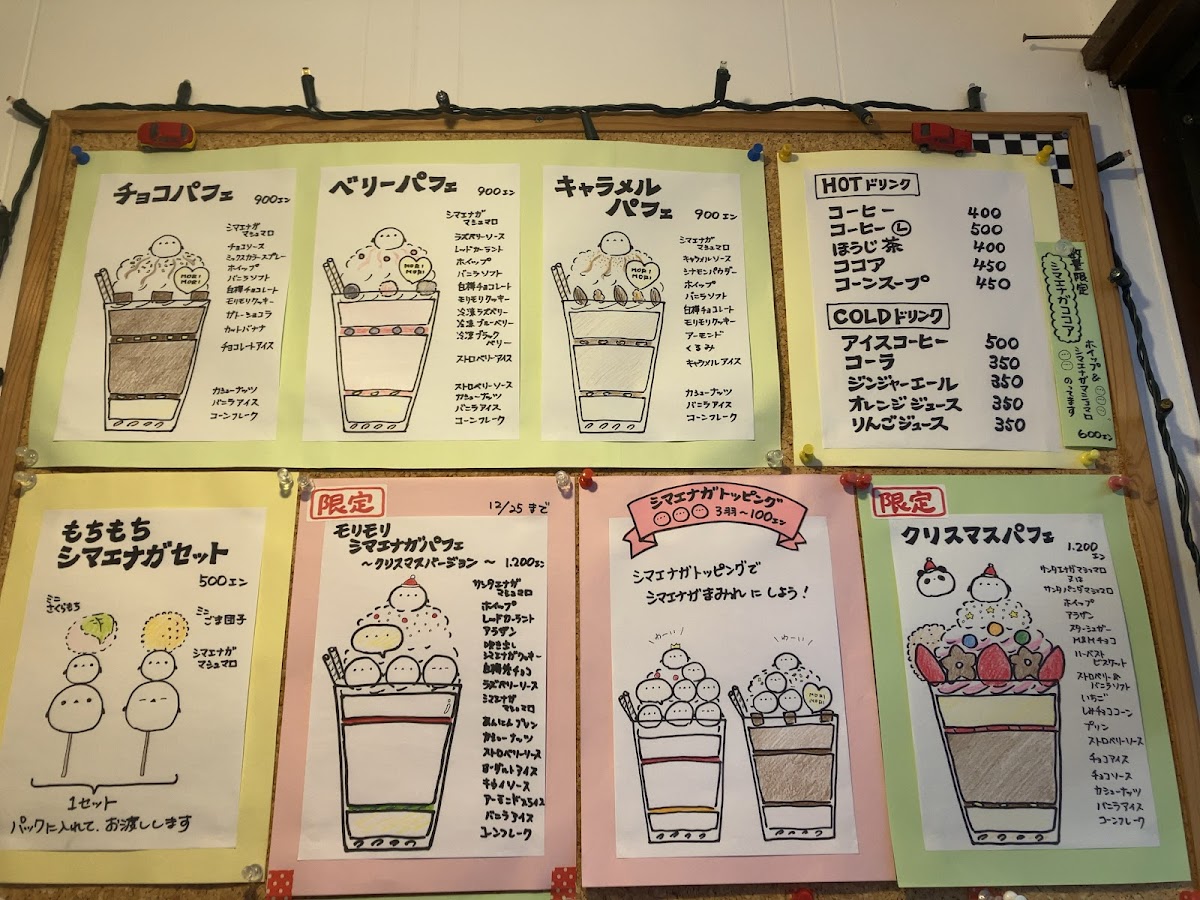 チョコパフェ 900エン
シマエナガ
マシュマロ
チョコソース
ミックスカラースプレー
ホイップ
バニラソフト
白樺チョコレート
モリモリクッキー
ガトーショコラ
カットバナナ
チョコレートアイス
カシューナッツ
バニラアイス
コーンフレーク
MORI
MORI
ベリーパフェ 900エン
シマエナガ
マシュマロ
ラズベリーソース
レッドカーラント
ホイップ
バニラソフト
白樺チョコレート
モリモリクッキー
冷凍ラズベリー
冷凍ブルーベリー
冷凍ブラック
ベリー
ストロベリーアイス
ストロベリーソース
カシューナッツ
バニラアイス
コーンフレーク
MORI
MORI
キャラメル
パフェ 900エン
シマエナガ
マシュマロ
キャラメルソース
シナモンパウダー
ホイップ
バニラソフト
白樺チョコレート
モリモリクッキー
アーモンド
くるみ
キャラメルアイス
カシューナッツ
バニラアイス
コーンフレーク
MORI
MORI
HOTドリンク
コーヒー 400
コーヒーⓁ 500
ほうじ茶 400
ココア 450
コーンスープ 450
COLDドリンク
アイスコーヒー 500
コーラ 350
ジンジャーエール 350
オレンジジュース 350
りんごジュース 350
数量限定
シマエナガココア
ホイップ&
シマエナガマシュマロ
のってます
600エン
もちもち
シマエナガセット
500エン
ミニ
さくらもち
ミニ
ごま団子
シマエナガ
マシュマロ
1セット
パックに入れて、お渡しします
限定
12/25まで
モリモリ
シマエナガパフェ
～クリスマスバージョン～ 1.200エン
サンタエナガ
マシュマロ
ホイップ
レッドカーラント
アラザン
吹き出し
シマエナガクッキー
ラズベリーソース
シマエナガ
マシュマロ
あんにんプリン
カシューナッツ
ストロベリーソース
ヨーグルトアイス
キウイソース
バニラアイス
コーンフレーク
シマエナガトッピング
3羽～100エン
シマエナガトッピングで
シマエナガまみれにしよう!
わーい
わーい
MORI
MORI
限定
クリスマスパフェ
1.200
エン
サンタエナガマシュマロ
又は
サンタパンダマシュマロ
ホイップ
アラザン
スターシュガー
M&Mチョコ
ハーベスト
ビスケット
ストロベリー&
バニラソフト
いちご
しみチョココーン
プリン
ストロベリーソース
チョコアイス
チョコソース
カシューナッツ
バニラアイス
コーンフレーク